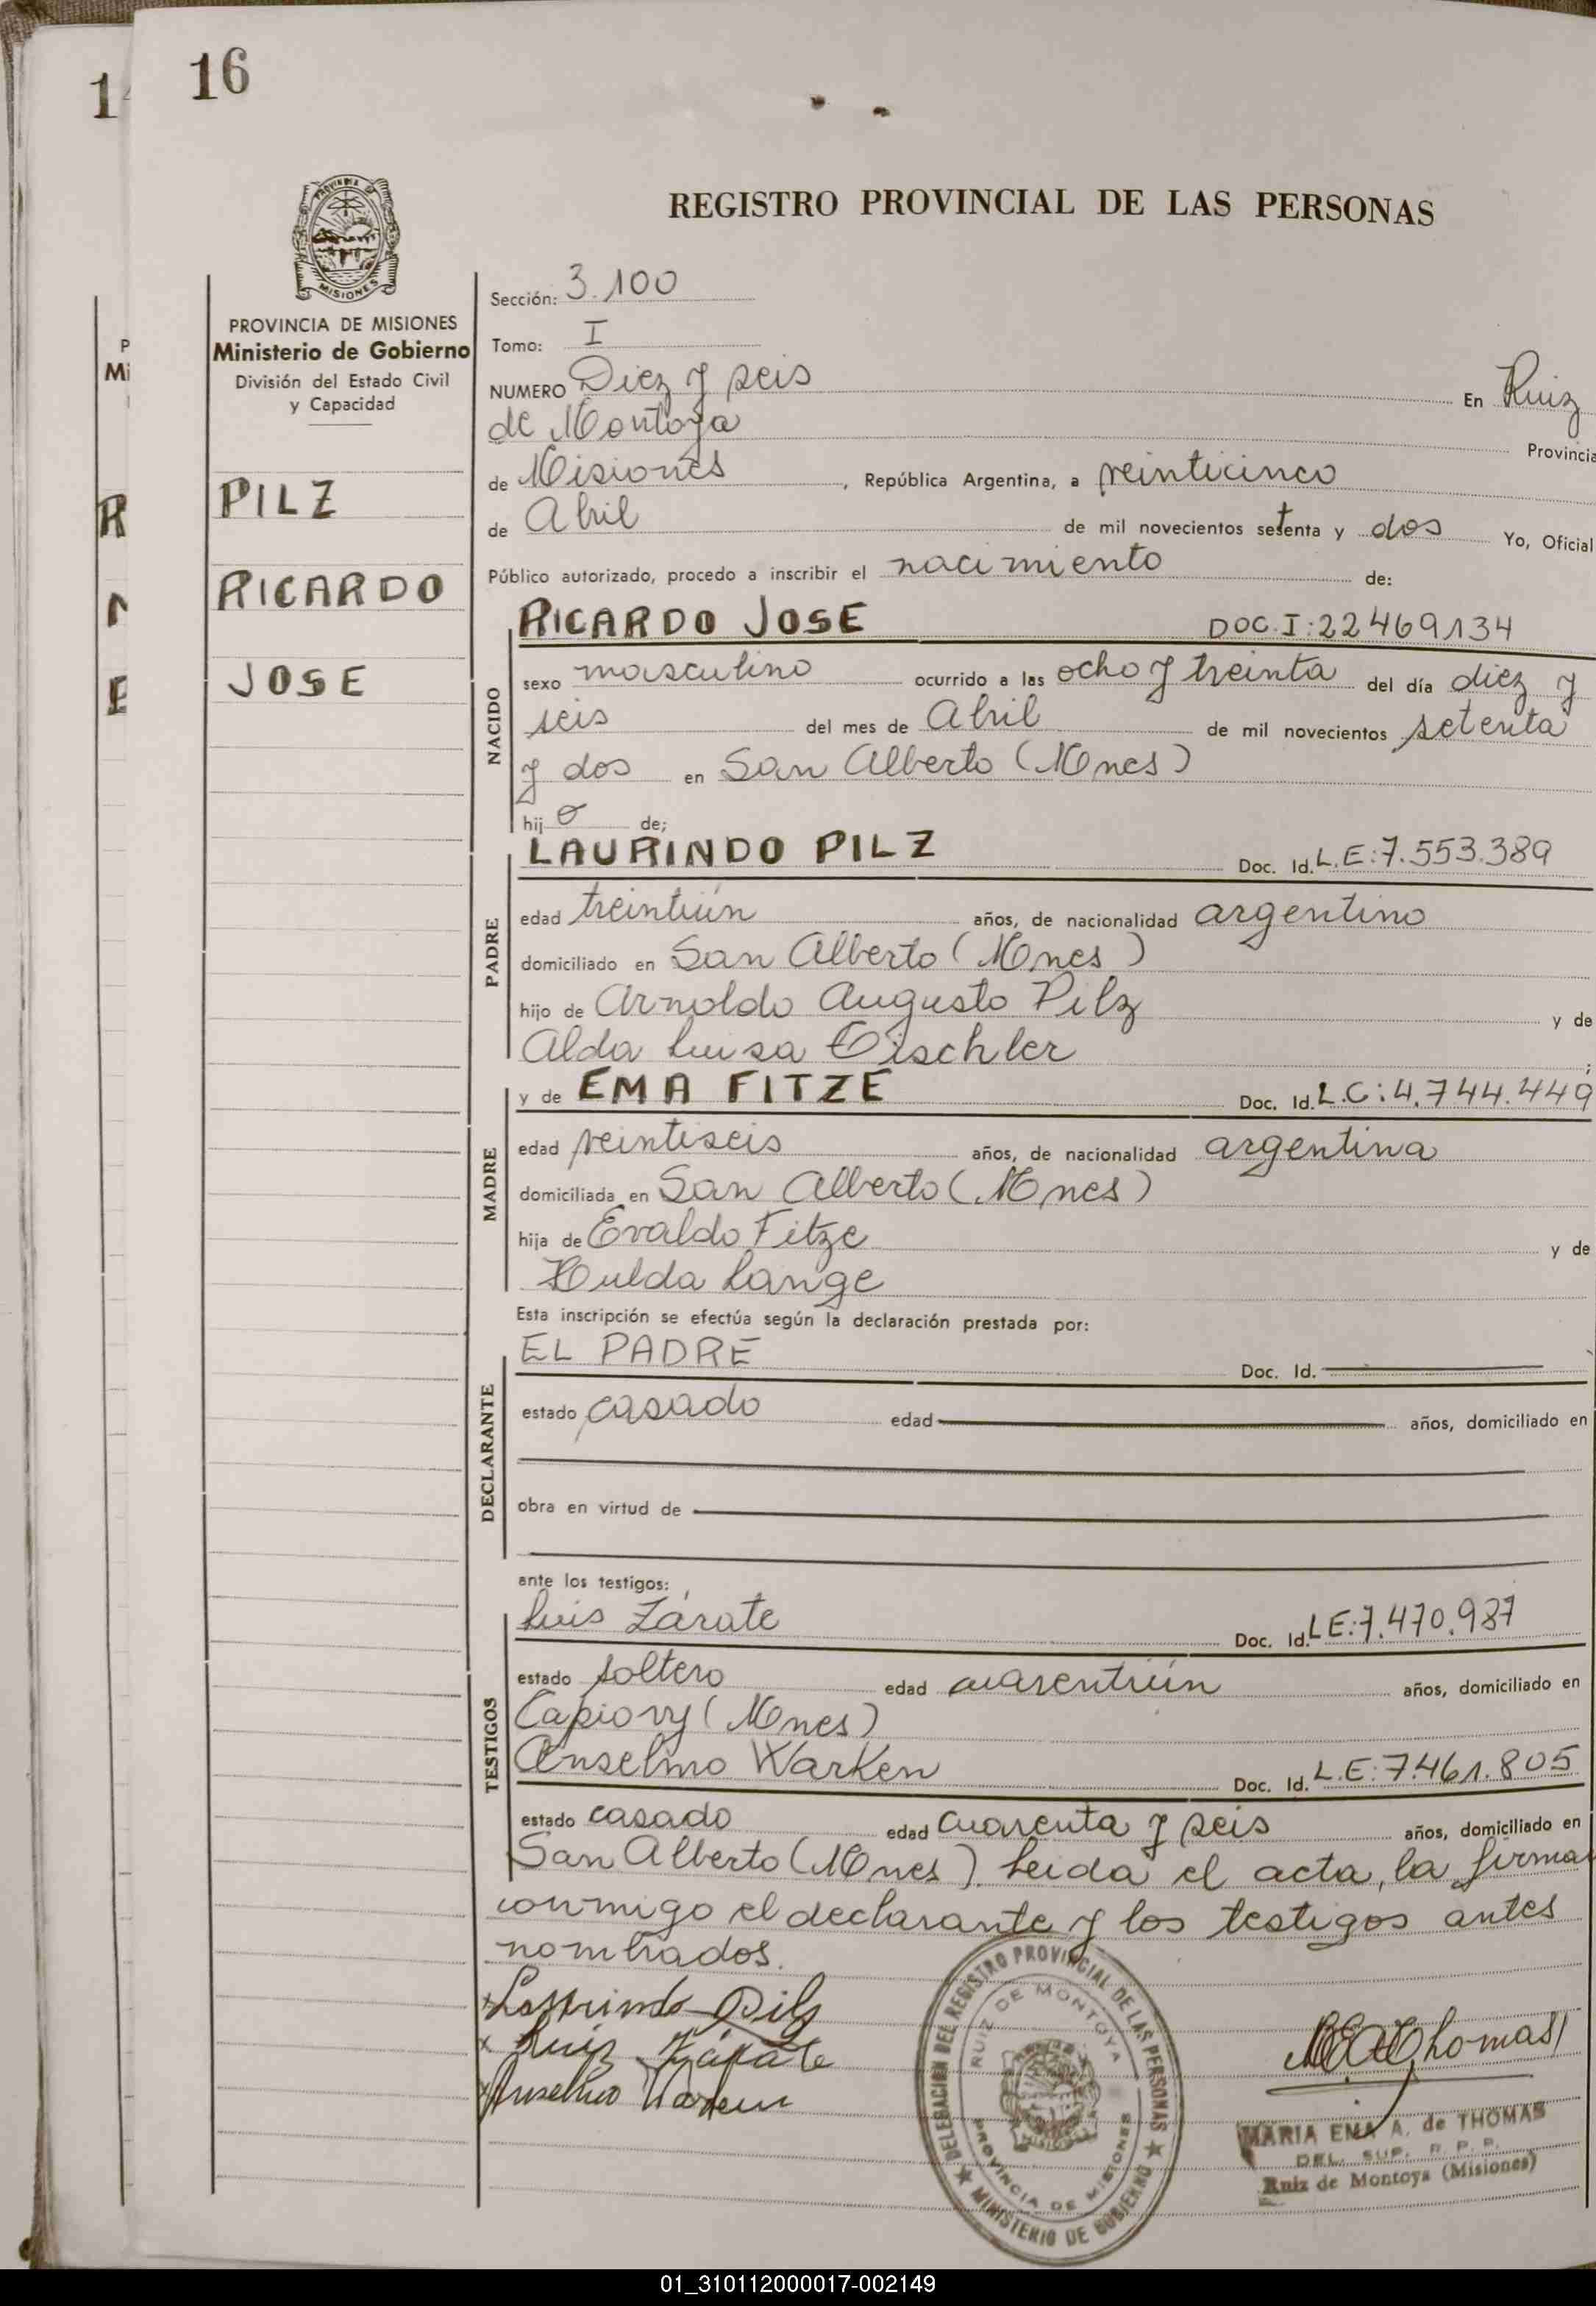 14
16
PROVINCIA DE
MISIONES
REGISTRO PROVINCIAL DE LAS PERSONAS
PROVINCIA DE MISIONES
Ministerio de Gobierno
División del Estado Civil
y Capacidad
PILZ
RICARDO
JOSE
Sección: 3.100
Tomo: I
NUMERO Diez y seis En Ruiz
de Montoya Provincia
de Misiones, República Argentina, a veinticinco
de Abril de mil novecientos setenta y dos Yo, Oficial
Público autorizado, procedo a inscribir el nacimiento de:
NACIDO
RICARDO JOSE DOC.I:22469134
sexo masculino ocurrido a las ocho y treinta del día diez y
seis del mes de Abril de mil novecientos setenta
y dos en San Alberto (Mnes)
hijo de;
PADRE
LAURINDO PILZ Doc. Id. L.E:7.553.389
edad treintiún años, de nacionalidad argentino
domiciliado en San Alberto (Mnes)
hijo de Arnoldo Augusto Pilz y de
Alda Luisa Tischler;
MADRE
y de EMA FITZE Doc. Id. L.C:4.744.449
edad veintiseis años, de nacionalidad argentina
domiciliada en San Alberto (Mnes)
hija de Evaldo Fitze y de
Hulda Lange
Esta inscripción se efectúa según la declaración prestada por:
DECLARANTE
EL PADRE Doc. Id.
estado casado edad años, domiciliado en
obra en virtud de
ante los testigos:
TESTIGOS
Luis Zárate Doc. Id. LE:7.470.987
estado soltero edad cuarentiún años, domiciliado en
Capiovy (Mnes)
Anselmo Warken Doc. Id. L.E:7.461.805
estado casado edad cuarenta y seis años, domiciliado en
San Alberto (Mnes). Leida el acta, la firma
conmigo el declarante y los testigos antes
nombrados.
x Laurindo Pilz
x Luis Zárate
x Anselmo Warken
DELEGACION DEL REGISTRO PROVINCIAL DE LAS PERSONAS
MINISTERIO DE GOBIERNO
RUIZ DE MONTOYA
PROVINCIA DE MISIONES
MEAThomas
MARIA EMA A. de THOMAS
DEL. SUP. R. P. P.
Ruiz de Montoya (Misiones)
01_310112000017-002149